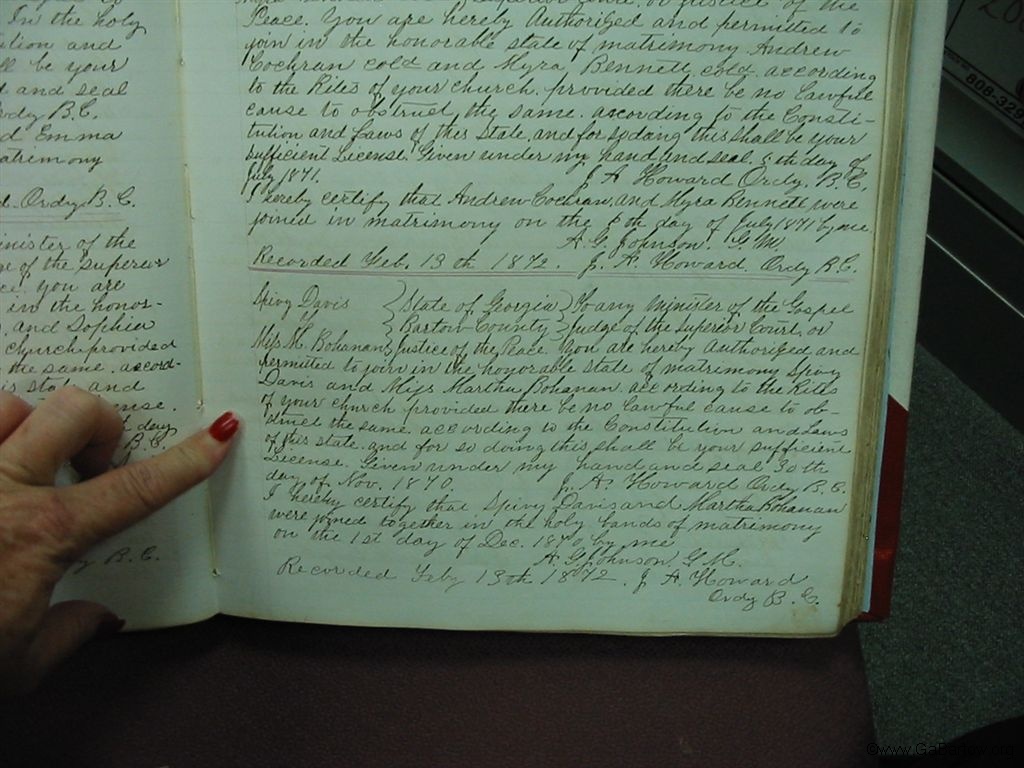 In the holy
and
ll be your
d and seal
Ordy B.C.
d Emma
atrimony
d. Ordy B.C.
inister of the
ge of the Superior
ce. you are
in the honor-
and Sophia
church provided
the same. accord-
is state and
ense.
day
B.C.
y B.C.
Superior Court, or Justice of the
Peace. You are hereby Authorized and permitted to
join in the honorable state of matrimony Andrew
Cochran cold and Myra Bennett cold. according
to the Rites of your church. provided there be no lawful
cause to obstruct the same. according to the Consti-
tution and Laws of this State. and for so doing this shall be your
sufficient License. Given under my hand and seal. 8th day of
July 1871. J. A. Howard Ordy. B.C.
I hereby certify that Andrew Cochran and Myra Bennett were
joined in matrimony on the 8th day of July 1871 by me.
A. G. Johnson. G.M.
Recorded Feb. 13th 1872. J. A. Howard. Ordy B.C.
Spivy Davis } State of Georgia } To any Minister of the Gospel
& } Bartow County } Judge of the Superior Court, or
Miss M. Bohanan } Justice of the Peace. You are hereby Authorized and
permitted to join in the honorable state of matrimony Spivy
Davis and Miss Martha Bohanan according to the Rites
of your church provided there be no lawful cause to ob-
struct the same. according to the Constitution and Laws
of this state. and for so doing this shall be your sufficient
License. Given under my hand and seal 30th
day of Nov. 1870. J. A. Howard Ordy B.C.
I hereby certify that Spivy Davis and Martha Bohanan
were joined together in the holy bands of matrimony
on the 1st day of Dec. 1870 by me
A. G. Johnson, G.M.
Recorded Feby 13th 1872. J. A. Howard
Ordy B.C.
808-329